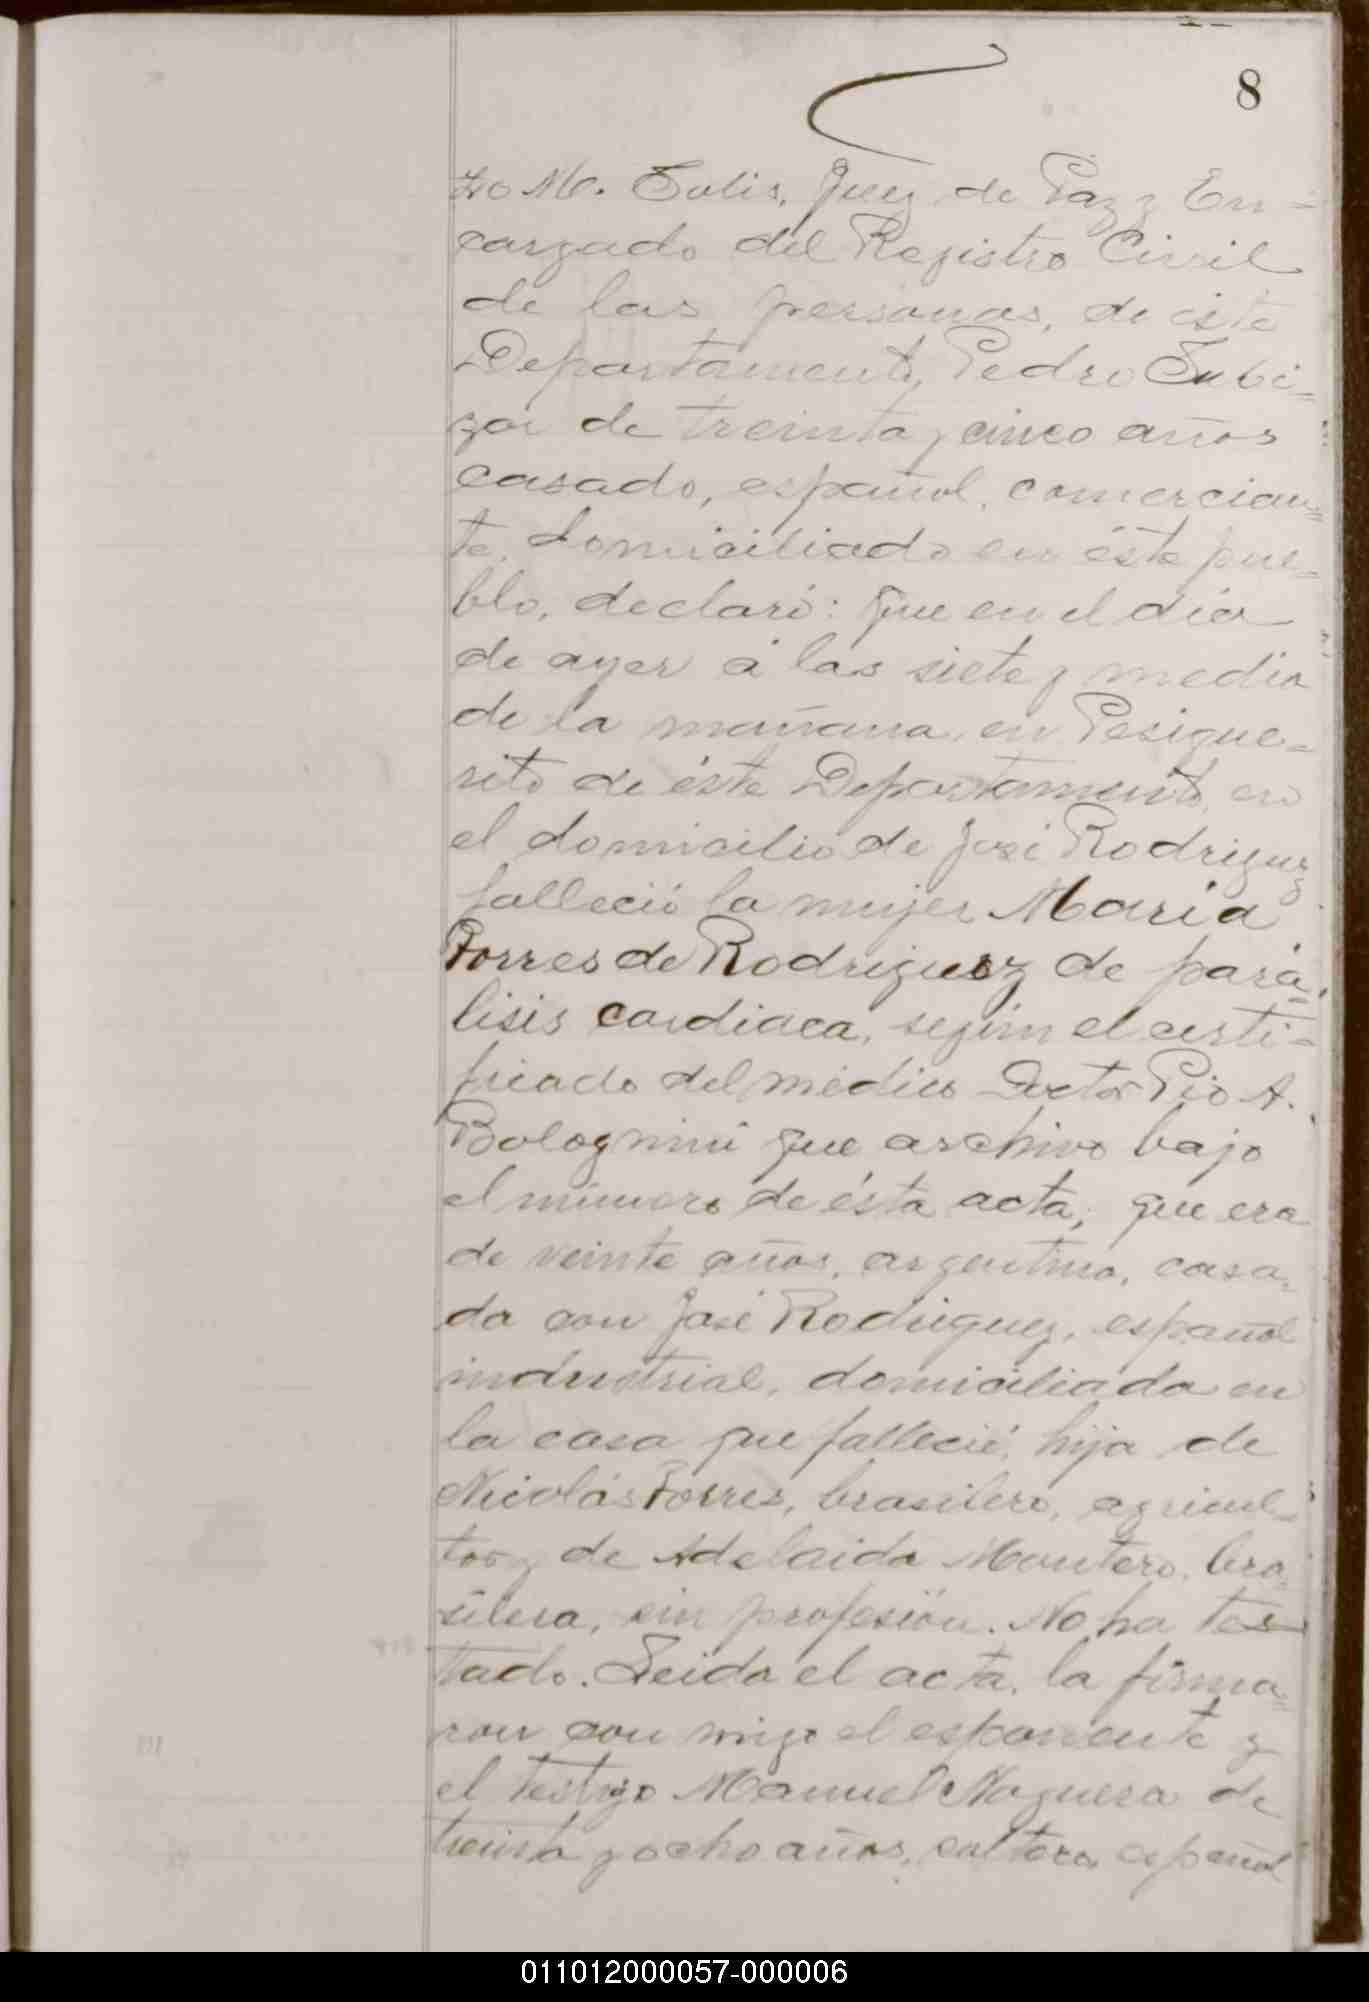 8
tro M. Solis, Juez de Paz y En=
cargado del Registro Civil
de las personas, de éste
Departamento, Pedro Subi=
zar de treinta y cinco años
casado, español, comercian=
te, domiciliado en éste pue=
blo, declaró: que en el día
de ayer á las siete y media
de la mañana en Pesigue=
rito de éste Departamento, en
el domicilio de José Rodriguez
falleció la mujer Maria
Torres de Rodriguez de pará=
lisis cardiaca, según el certi=
ficado del médico Doctor Pio A.
Bolognini que archivo bajo
el número de ésta acta, que era
de veinte años, argentina, casa=
da con José Rodriguez, español
industrial, domiciliada en
la casa que falleció, hija de
Nicolás Torres, brasilero, agricul=
tor y de Adelaida Montero, bra=
silera, sin profesión. No ha tes
tado. Leida el acta, la firma=
ron con migo el esponente y
el testigo Manuel Noguera de
treinta y ocho años, soltero, español
011012000057-000006